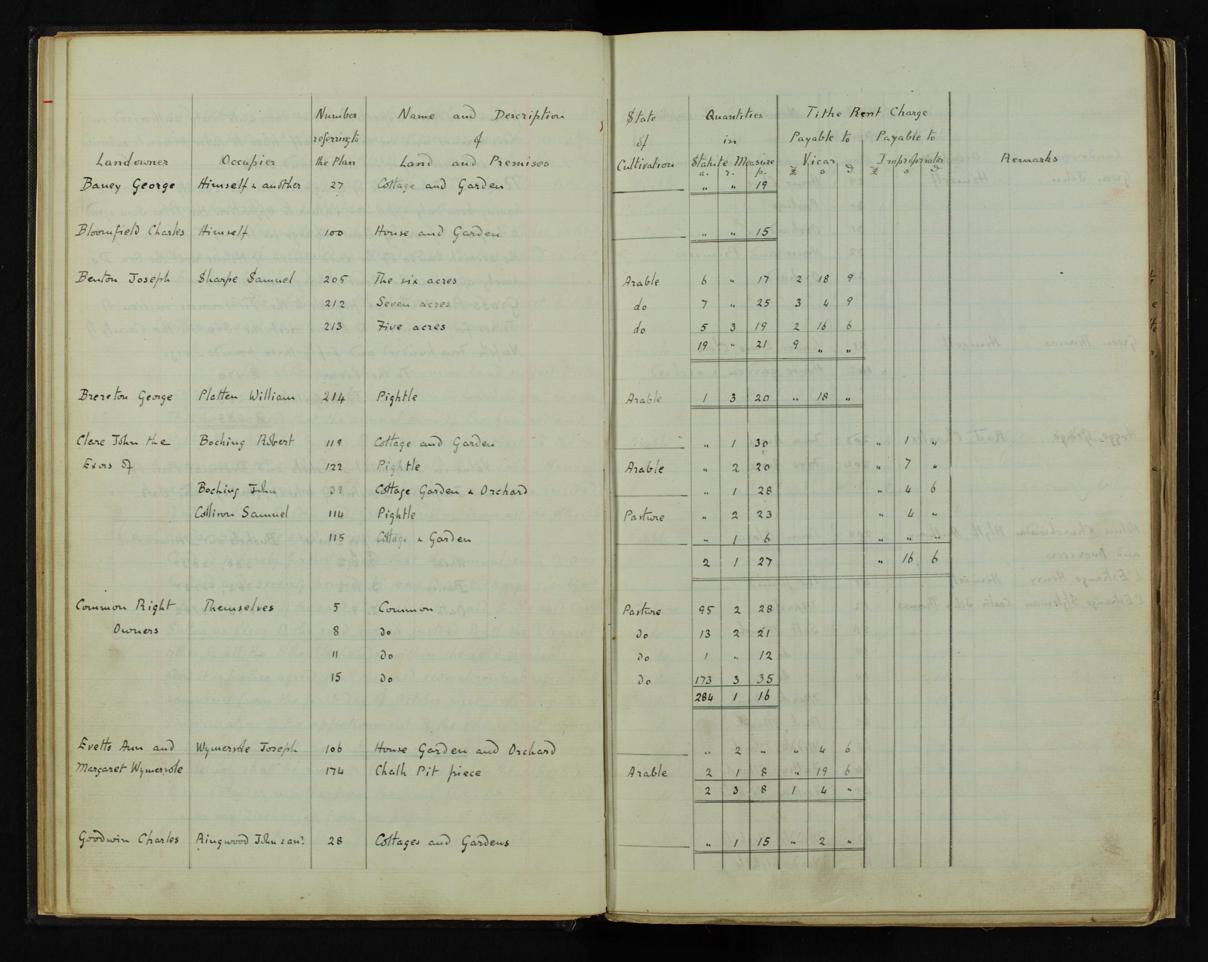 Landowner Occupier Number referring to the Plan Name and Description of Land and Premises State of Cultivation Quantities in Statute Measure a. r. p. Tithe Rent Charge Payable to Vicar £ s d Payable to Impropriator £ s d Remarks
Baney George Himself & another 27 Cottage and Garden — " " 19
Bloomfield Charles Himself 100 House and Garden — " " 15
Benton Joseph Sharpe Samuel 205 The six acres Arable 6 " 17 2 18 9
212 Seven acres do 7 " 25 3 4 9
213 Five acres do 5 3 19 2 16 6
19 " 21 9 " "
Brereton George Platten William 214 Pightle Arable 1 3 20 " 18 "
Clare John the Bocking Robert 119 Cottage and Garden — " 1 30 " 1 "
Exors of 122 Pightle Arable " 2 20 " 7 "
Bocking John Cottage Garden & Orchard — " 1 28 " 4 6
Collison Samuel 114 Pightle Pasture " 2 23 " 4 "
115 Cottage & Garden — " 1 6 " " "
2 1 27 " 16 6
Common Right Themselves 5 Common Pasture 95 2 28
Owners 8 do do 13 2 21
11 do do 1 " 12
15 do do 173 3 35
284 1 16
Evetts Ann and Wymersole Joseph 106 House Garden and Orchard — " 2 " " 4 6
Margaret Wymersole 174 Chalk Pit piece Arable 2 1 8 " 19 6
2 3 8 1 4 "
Goodwin Charles Ringwood John & anr. 28 Cottages and Gardens — " 1 15 " 2 "